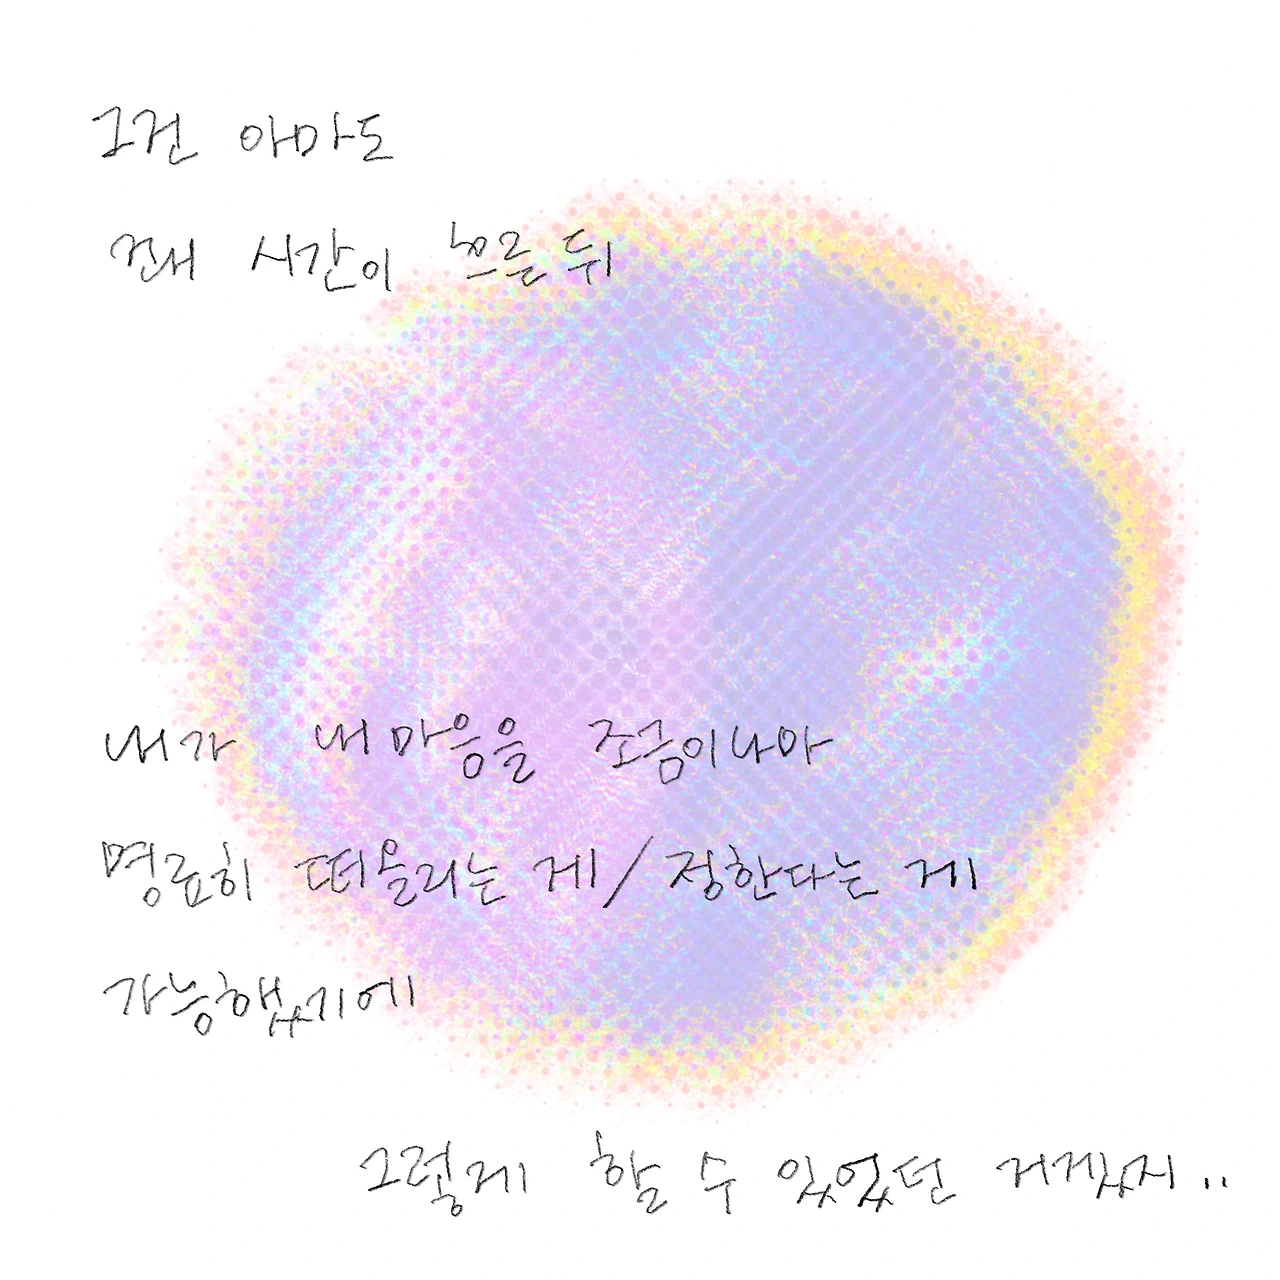 그건 아마도
꽤 시간이 흐른 뒤
내가 내 마음을 조금이나마
명료히 떠올리는 게/정한다는 게
가능했기에
그렇게 할 수 있었던 거겠지..